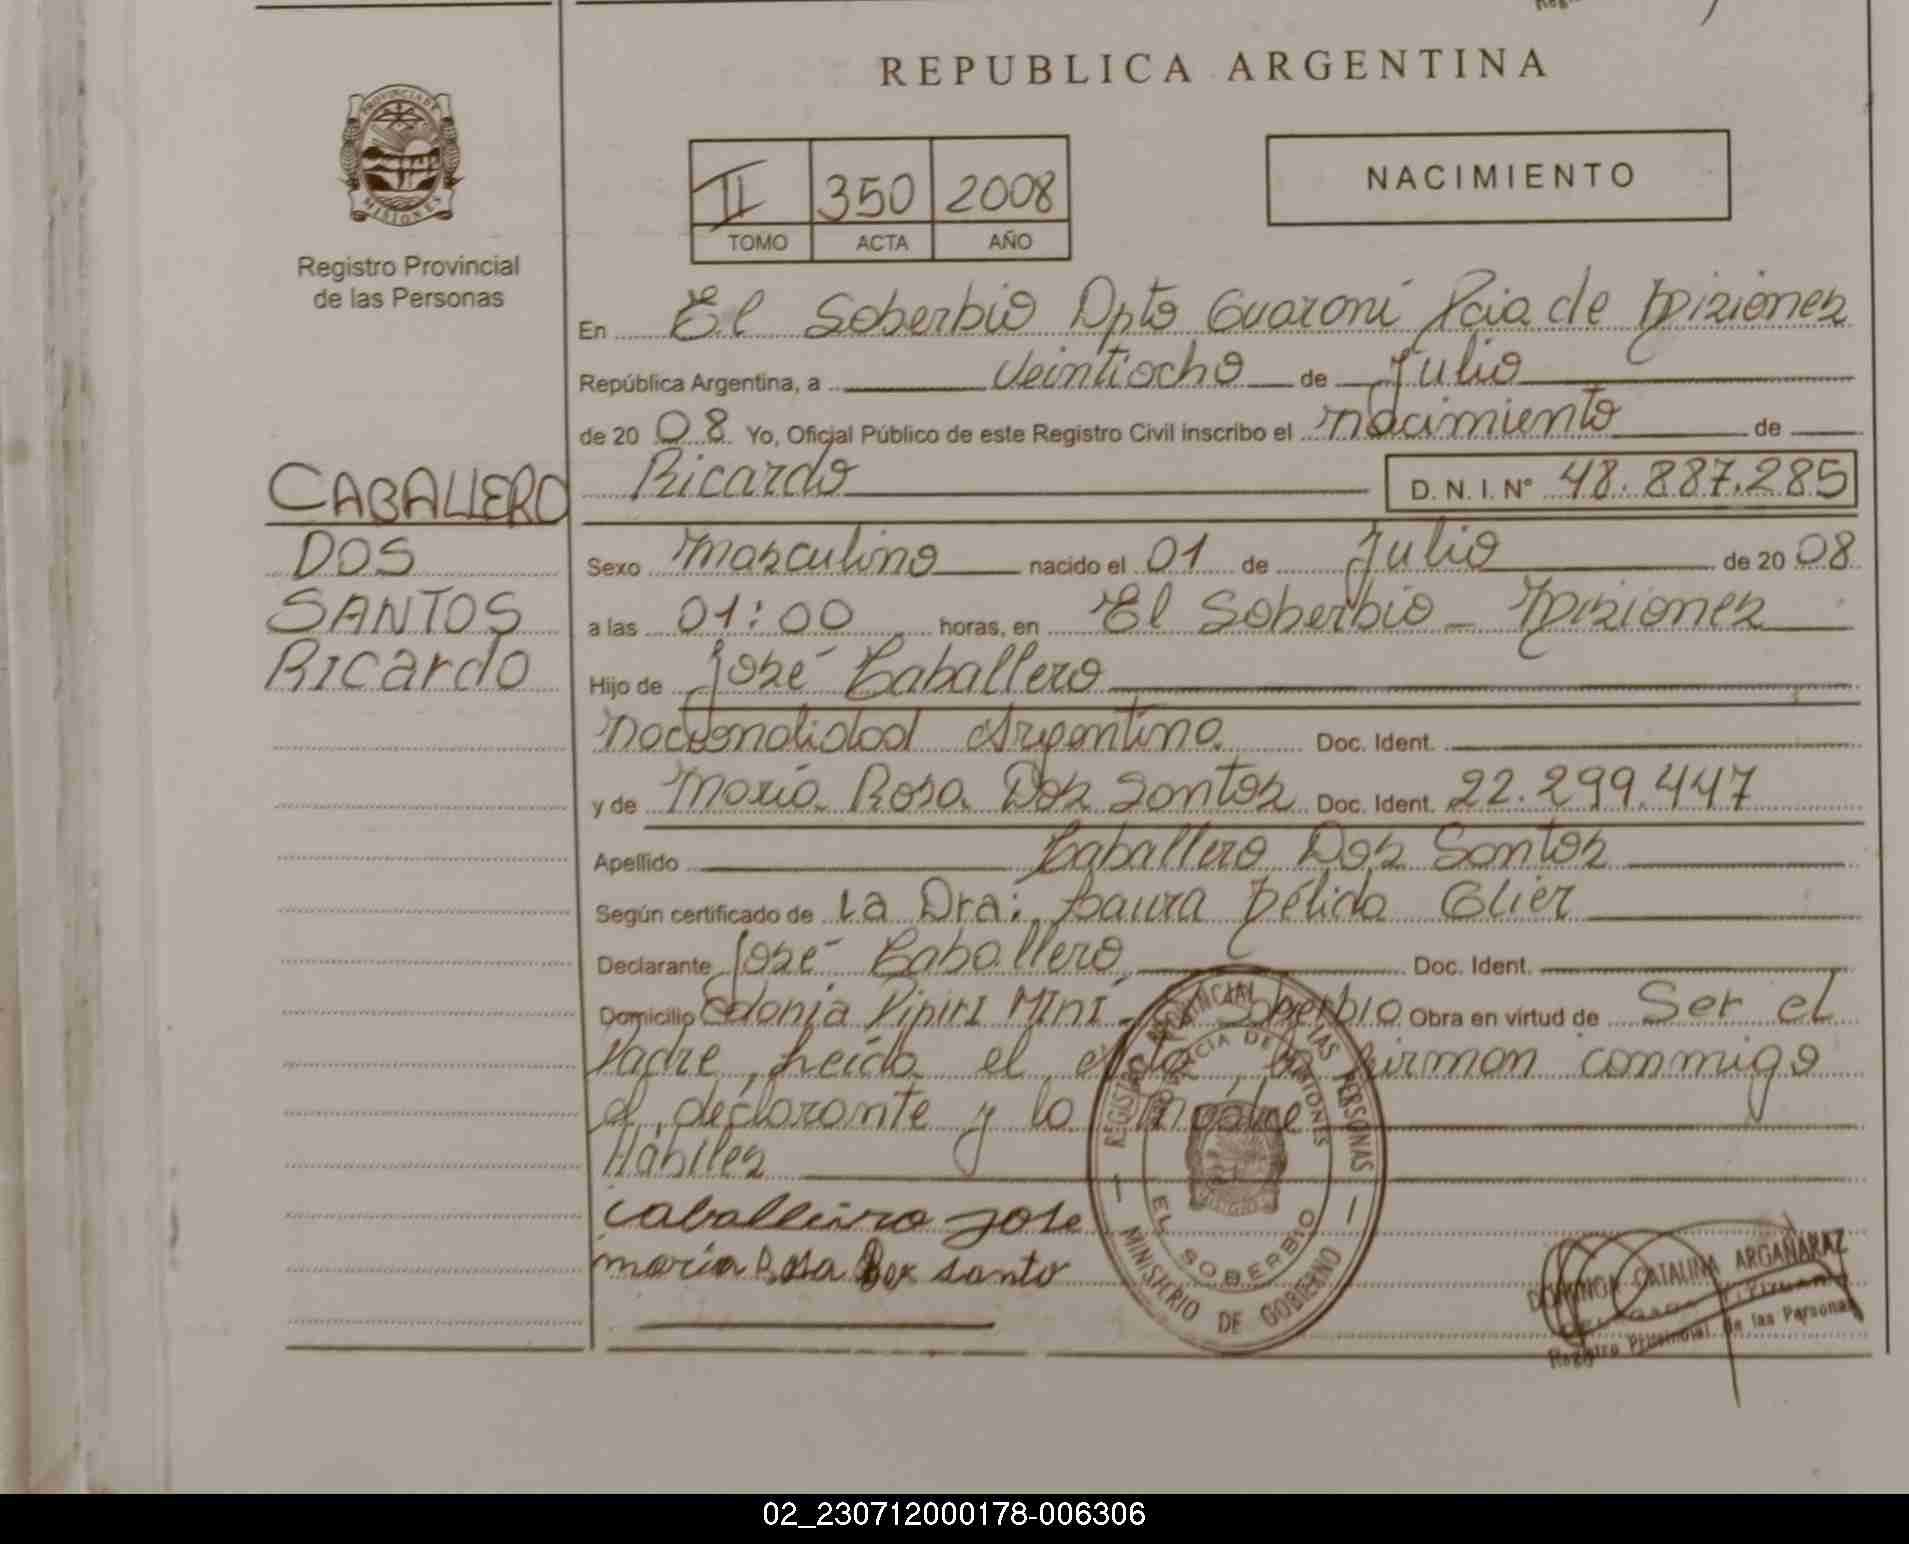 REPUBLICA ARGENTINA
PROVINCIA DE
MISIONES
Registro Provincial
de las Personas
II 350 2008
TOMO ACTA AÑO
NACIMIENTO
En El Soberbio Dpto Guaraní Pcia de Misiones
República Argentina, a veintiocho de Julio
de 20 08 Yo, Oficial Público de este Registro Civil inscribo el nacimiento de
CABALLERO
DOS
SANTOS
Ricardo
Ricardo D. N. I. N° 48.887.285
Sexo masculino nacido el 01 de Julio de 20 08
a las 01:00 horas, en El Soberbio - Misiones
Hijo de José Caballero
nacionalidad Argentina Doc. Ident.
y de María Rosa Dos Santos Doc. Ident. 22.299.447
Apellido Caballero Dos Santos
Según certificado de La Dra: Laura Nélida Glier
Declarante José Caballero Doc. Ident.
Domicilio Colonia Pipiri Mini - El Soberbio Obra en virtud de Ser el
Padre, Leída el acta, la firman conmigo
el declarante y la madre
Hábiles
Caballeiro Jose
maria Rosa Dos santo
REGISTRO PROVINCIAL DE LAS PERSONAS
PROVINCIA DE MISIONES
EL SOBERBIO
MINISTERIO DE GOBIERNO
DOMINGA CATALINA ARGAÑARAZ
Registro Provincial de las Personas
02_230712000178-006306